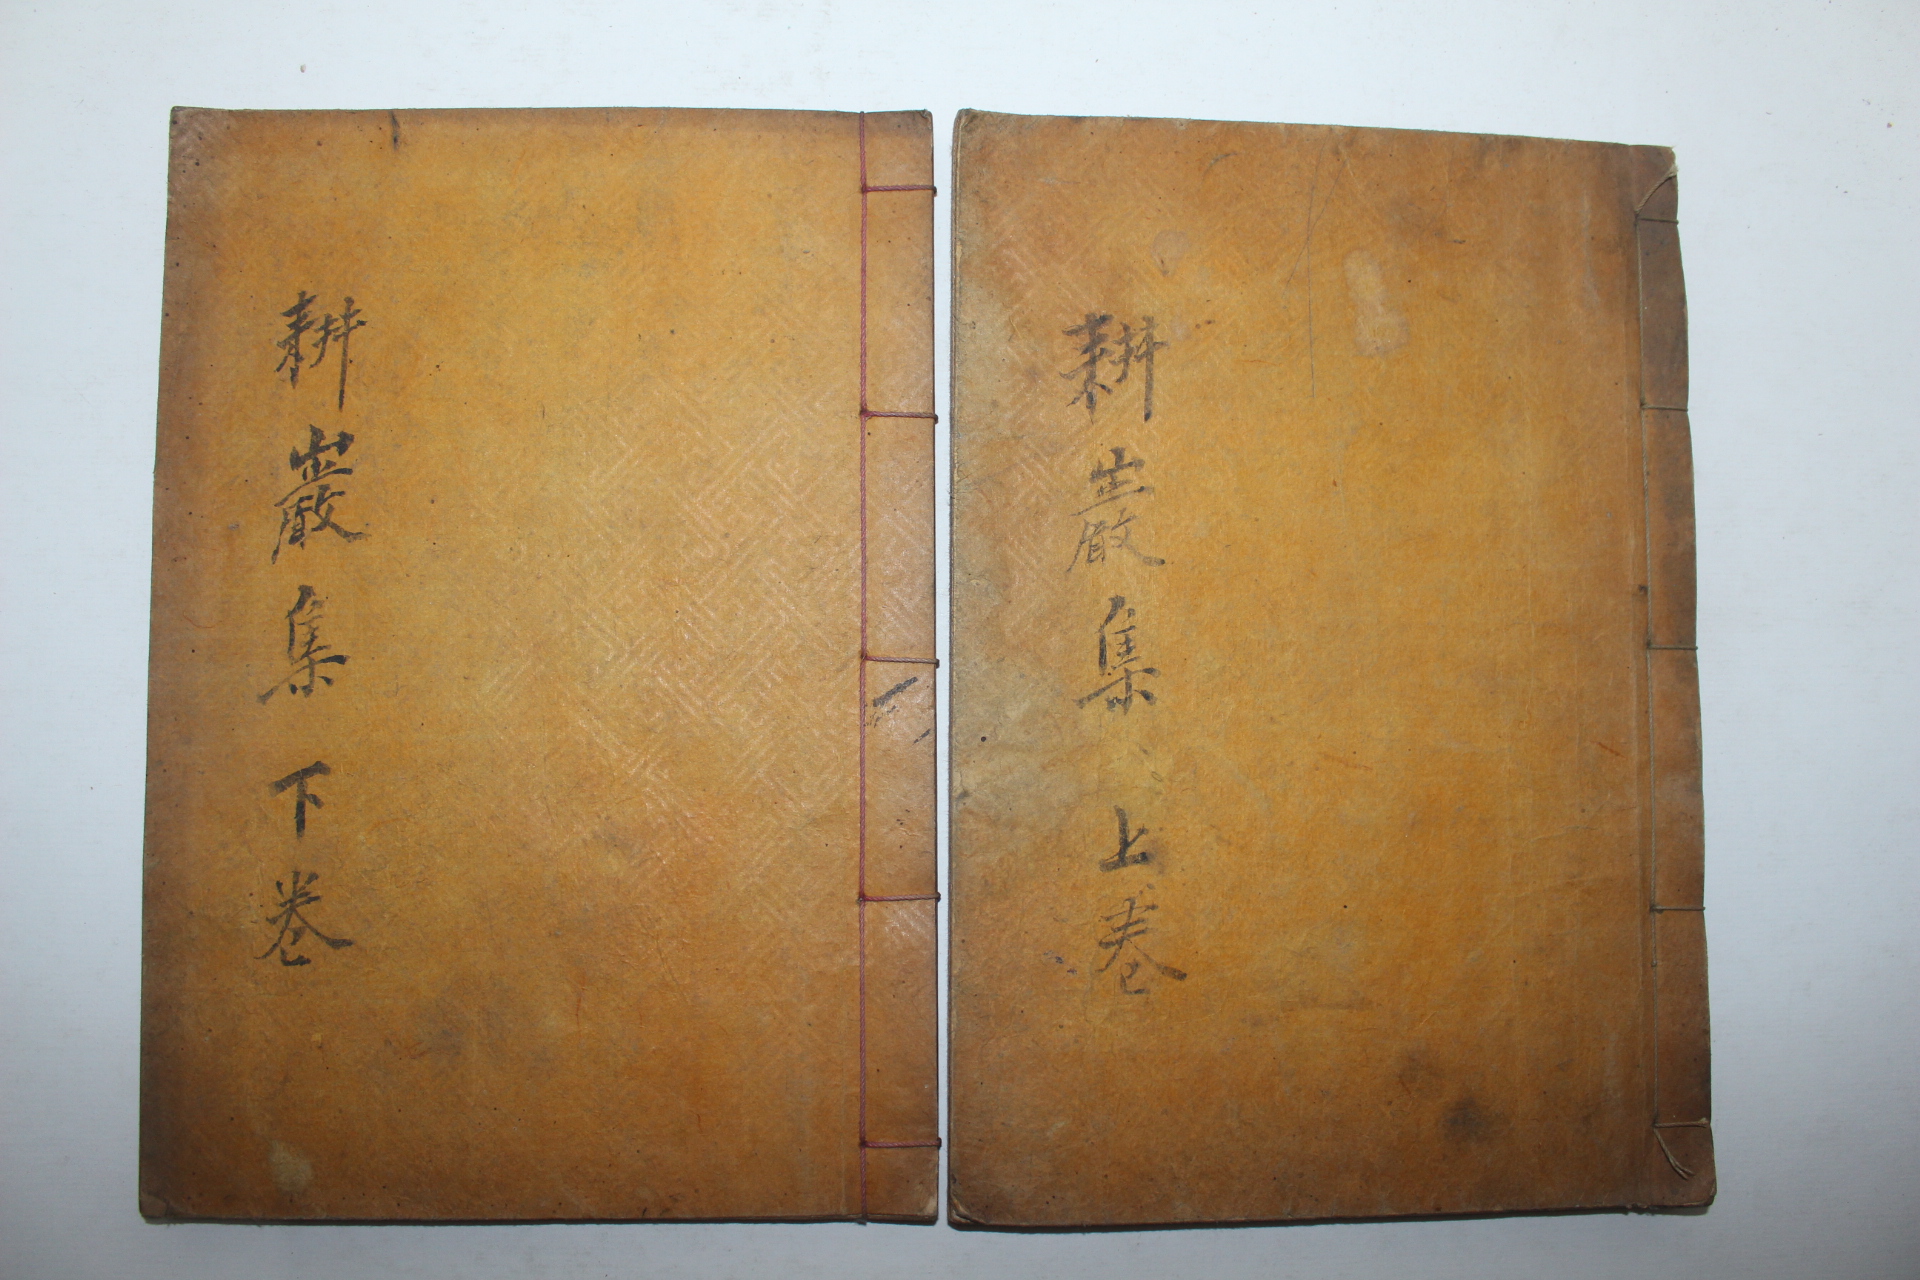 耕巖集 上卷
耕巖集 下卷